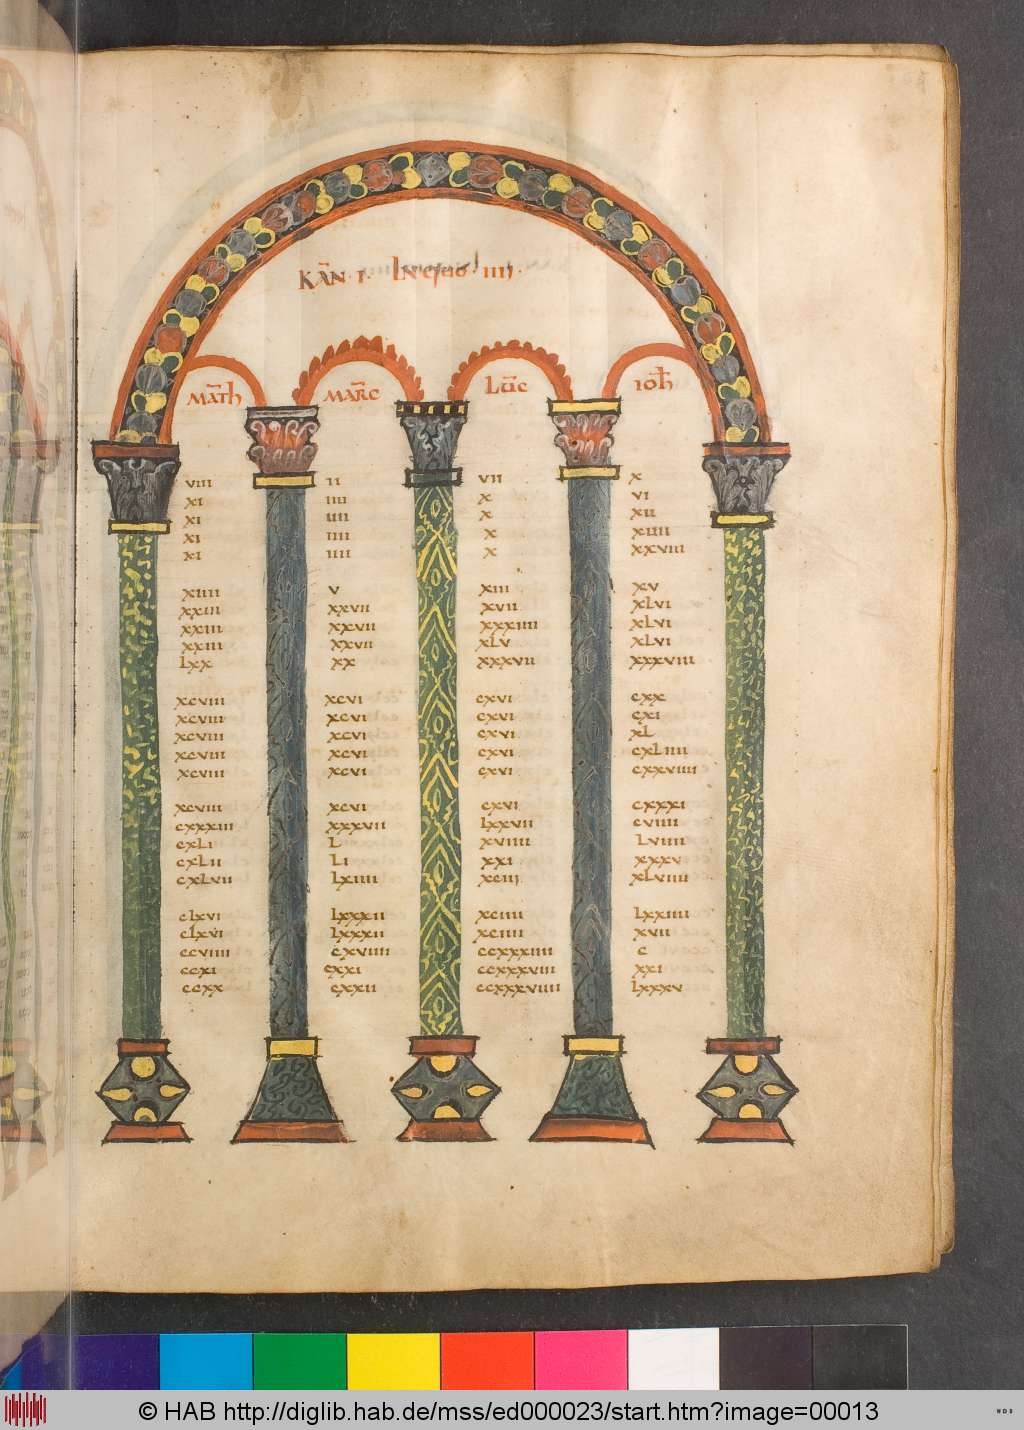 KAN̅ · I · IN quo · IIII ·
MAT̅H MAR̅C LUC̅ IOH̅
VIII II VII X
XI IIII X VI
XI IIII X XII
XI IIII X XIIII
XI IIII X XXVIII
XIIII V XIII XV
XXIII XXVII XVII XLVI
XXIII XXVII XXXIIII XLVI
XXIII XXVII XLV XLVI
LXX XX XXXVII XXXVIII
XCVIII XCVI CXVI CXX
XCVIII XCVI CXVI CXI
XCVIII XCVI CXVI XL
XCVIII XCVI CXVI CXLIIII
XCVIII XCVI CXVI CXXVIIII
XCVIII XCVI CXVI CXXXI
CXXXIII XXXVII LXXVII CVIIII
CXLI L XVIIII LVIIII
CXLII LI XXI XXXV
CXLVII LXIIII XCIII XLVIIII
CLXVI LXXXII XCIIII LXXIIII
CLXVI LXXXII XCIIII XVII
CCVIIII CXVIIII CCXXXIIII C
CCXI CXXI CCXXXVIII XXI
CCXX CXXII CCXXXVIIII LXXXV
© HAB http://diglib.hab.de/mss/ed000023/start.htm?image=00013